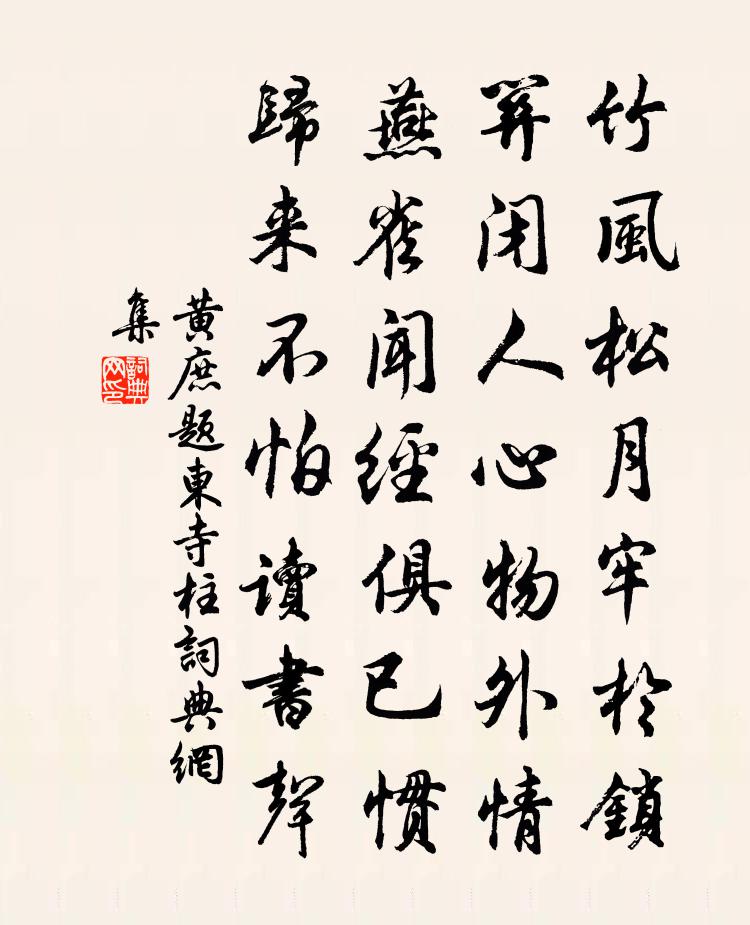 竹風松月牢於鎖
閉人心物外情
燕雀聞經俱已慣
歸来不怕讀書聲
黄庶題東寺柱詞典網
集
詞典
网印